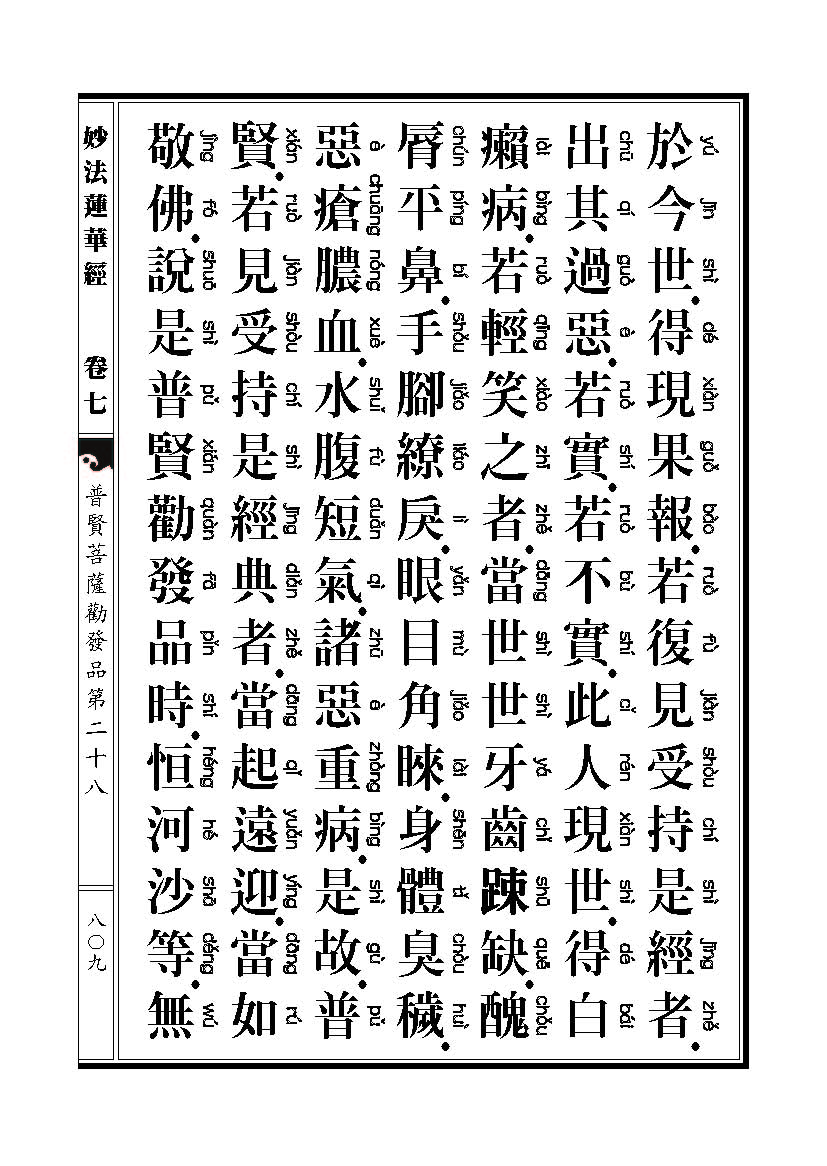 yú jīn shì dé xiàn guǒ bào ruò fù jiàn shòu chí shì jīng zhě
於今世．得現果報．若復見受持是經者．
chū qí guò è ruò shí ruò bù shí cǐ rén xiàn shì dé bái
出其過惡．若實．若不實．此人現世．得白
lài bìng ruò qīng xiào zhī zhě dāng shì shì yá chǐ shū quē chǒu
癩病．若輕笑之者．當世世牙齒踈缺．醜
chún píng bí shǒu jiǎo liáo lì yǎn mù jiǎo lài shēn tǐ chòu huì
脣平鼻．手腳繚戾．眼目角睞．身體臭穢．
è chuāng nóng xuè shuǐ fù duǎn qì zhū è zhòng bìng shì gù pǔ
惡瘡膿血．水腹短氣．諸惡重病．是故．普
xián ruò jiàn shòu chí shì jīng diǎn zhě dāng qǐ yuǎn yíng dāng rú
賢．若見受持是經典者．當起遠迎．當如
jìng fó shuō shì pǔ xián quàn fā pǐn shí héng hé shā děng wú
敬佛．說是普賢勸發品時．恒河沙等．無
妙法蓮華經 卷七
普賢菩薩勸發品第二十八
八〇九